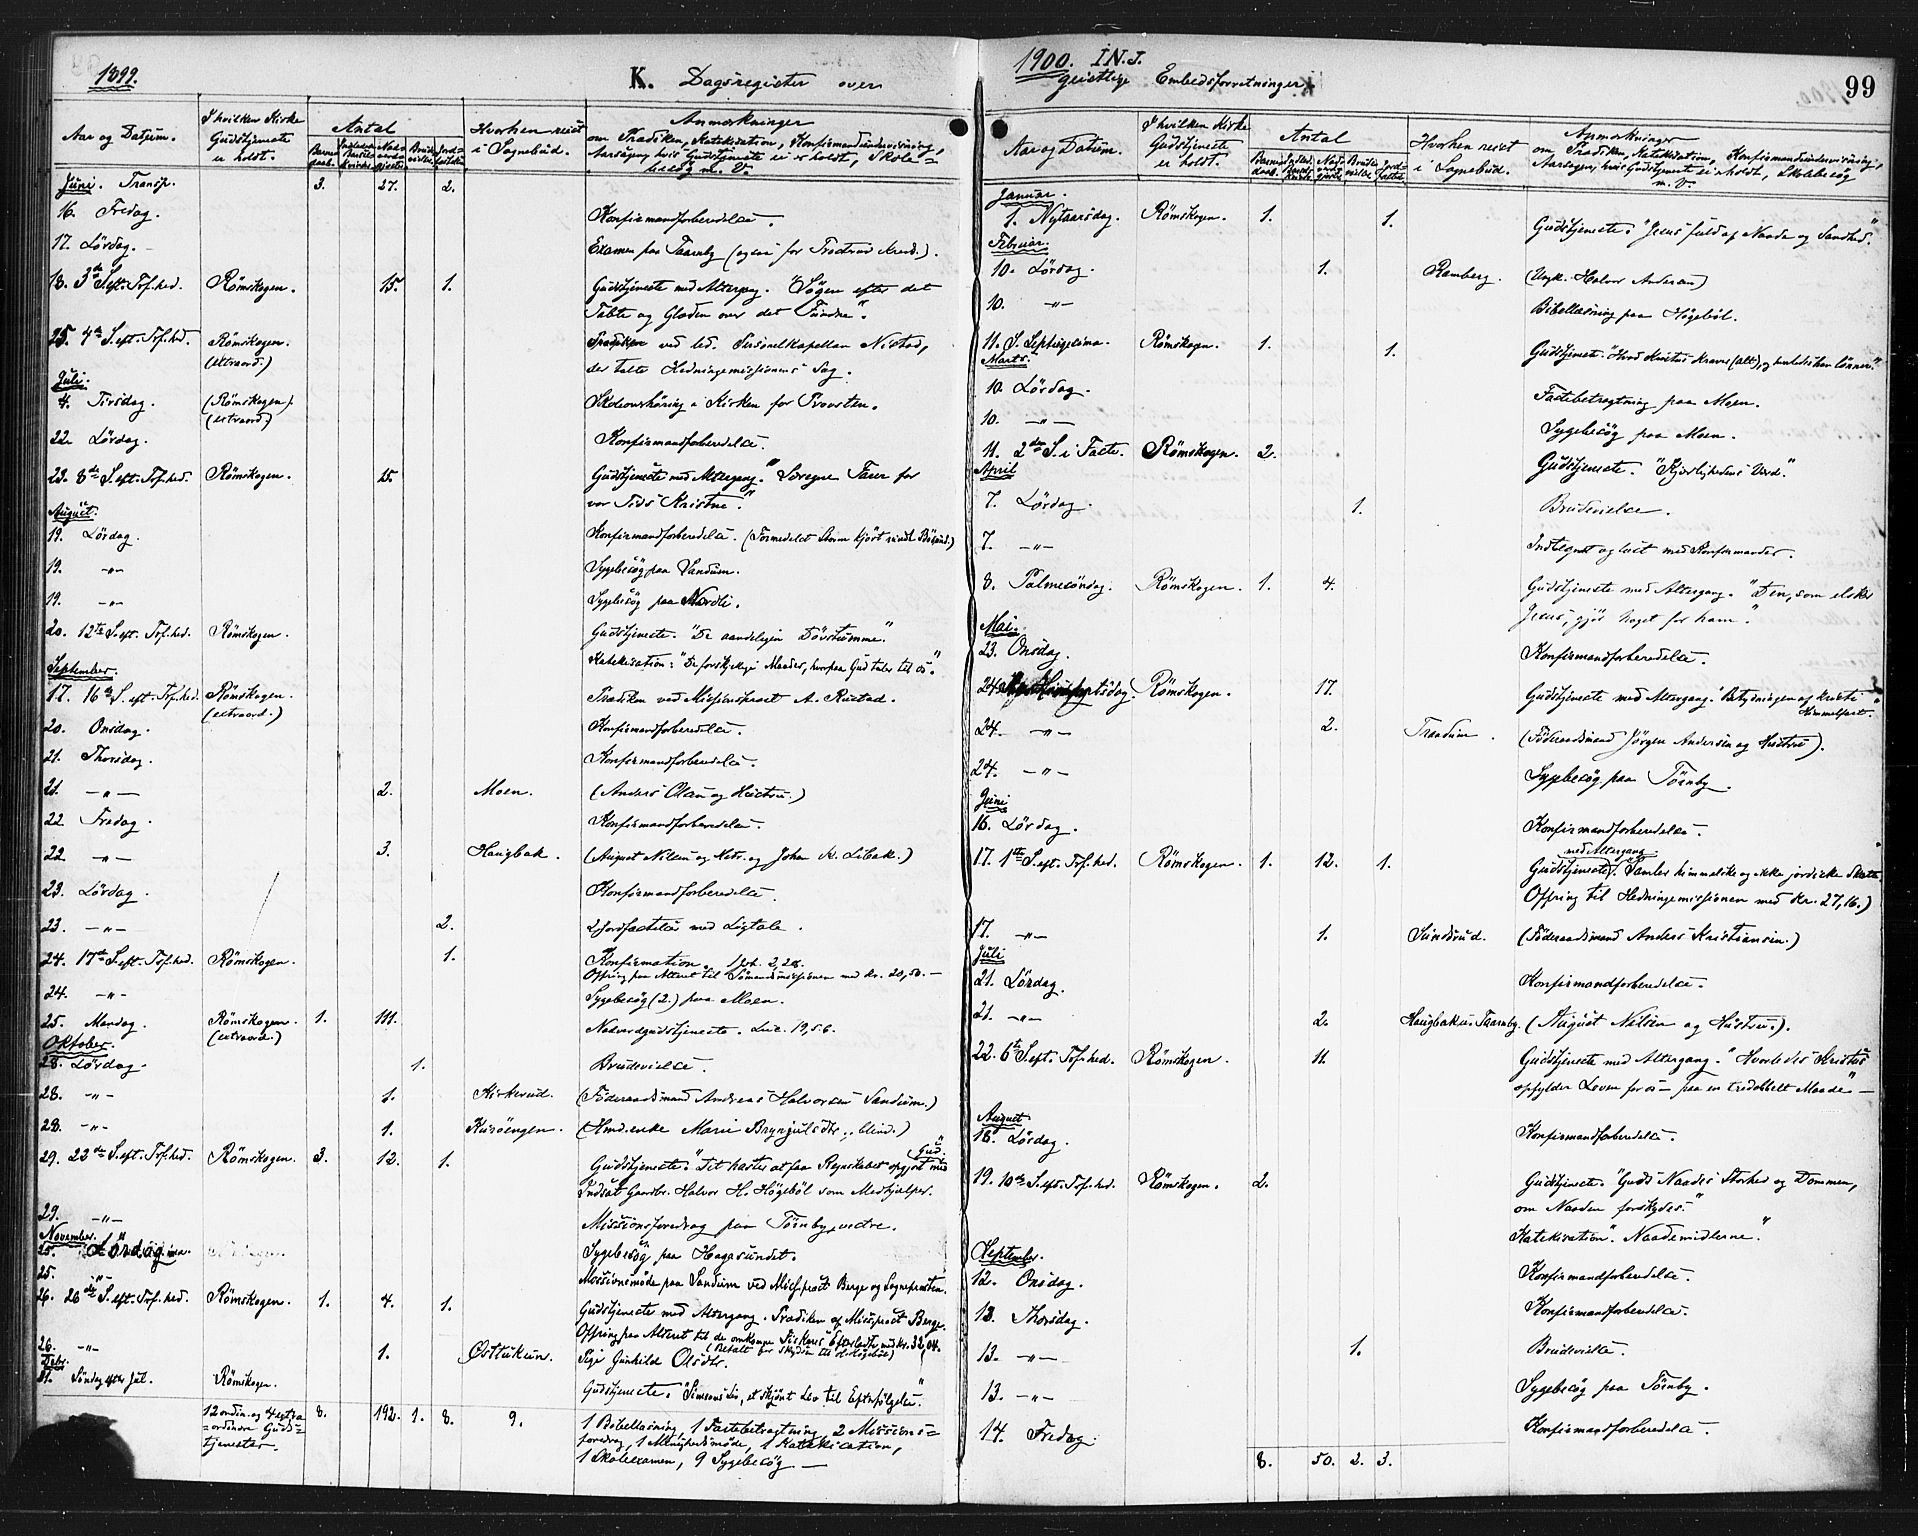 1899.
K. Dagsregister over
Aar og Datum.
I hvilken Kirke
Gudstjeneste
er holdt.
Antal
Hvorhen reist
i Sognebud.
Anmærkninger
om Prædiken, Katekisation, Konfirmandundervisning,
Aarsagen, hvis Gudstjeneste ei er holdt, Skole-
besøg m. V.
Juni. Transp. 3. 27. 2.
16. Fredag. Konfirmandforberedelse.
17. Lördag. Examen paa Taarnby
18. 3de S. eft. Tref.hed. Römskogen. 15. 1. Gudstjeneste med Altergang. "Søgen efter det
Tabte og Glæden over det Fundne".
25. 4de S. eft. Tref.hed. Römskogen. Prædiken ved
(extraord.) der talte Hedningemissionens Sag.
Juli.
4. Tirsdag. (Römskogen) Skoleoverhöring i Kirken for Provsten.
(extraord.)
22. Lördag. Konfirmandforberedelse.
23. 8de S. eft. Tref.hed. Römskogen. 15. Gudstjeneste med Altergang. " Farer for
vor Tids Kristne".
August.
19. Lördag. Konfirmandforberedelse.
19. -"- Sygebesög paa Sandum.
19. -"- Sygebesög paa Nordli.
20. 12te S. eft. Tref.hed. Römskogen. Gudstjeneste. "De aandelige Dövstumme".
Katekisation: "De forskjellige Maader, hvorpaa Gud taler til os".
September.
17. 16de S. eft. Tref.hed. Römskogen. Prædiken ved Missionsprest A. Rustad.
(extraord.)
20. Onsdag. Konfirmandforberedelse.
21. Thorsdag. Konfirmandforberedelse.
21. -"- 2. Moen. (Anders Olsen og Hustru.)
22. Fredag. Konfirmandforberedelse.
22. -"- 3. Haugbak. (August Nilsen og Hstr. og Johan K. Libak.)
23. Lördag. Konfirmandforberedelse.
23. -"- 2. 2 Jordfæstelser med Ligtale.
24. 17de S. eft. Tref.hed. Römskogen. 1. Konfirmation. 1 Joh. 2,28.
Offring paa Alteret til Sömandsmissionen med Kr. 20,50.-
24. -"- Sygebesög (2.) paa Moen.
25. Mandag. Römskogen. 1. 111. Nadverdgudstjeneste. Luc. 19,5.6.
(extraord.)
Oktober.
28. Lördag. 1. Brudevielse.
28. -"- 1. Kirkerud. (Föderaadsmand Andreas Halvorsen Sandum.)
28. -"- 1. Kusöengen. (Hmd.enke Marie Brynjulsdtr., blind.)
29. 22de S. eft. Tref.hed. Römskogen. 3. 12. 1. Gudstjeneste. "Det haster at faa Regnskabet opgjort med Gud."
Indsat Gaardbr. Halvor H. Högeböl som Medhjelper.
29. -"- Missionsforedrag paa Törnby vestre.
November.
25. Lördag. Sygebesög paa Hagasundet.
25. -"- Missionsmöde paa Sandum ved Miss.prest Berge og Sognepresten.
26. 26de S. eft. Tref.hed. Römskogen. 1. 4. 1. Gudstjeneste med Altergang. Prædiken af Miss.prest Berge.
Offring paa Alteret til de omkomne Fiskeres Efterladte med kr. 32,04.
26. -"- 1. Östtukun. Pige Gunhild Olsdtr.
Decbr.
31. Söndag efter Jul. Römskogen. Gudstjeneste.
12 ordin. og 4 extra-
ordinære Guds-
tjenester. 8. 192. 1. 8. 9. 1 Bibellæsning, 1 Fastebetragtning, 2 Missions-
foredrag, 1 Menighedsmøde, 1 Katekisation,
1 Skoleexamen, 9 Sygebesög.
1900. I.N.J.
geistlige Embedsforretninger.
99
Aar og Datum.
I hvilken Kirke
Gudstjeneste
er holdt.
Antal
Hvorhen reist
i Sognebud.
Anmærkninger
om Prædiken, Katekisation, Konfirmandundervisning,
Aarsagen, hvis Gudstjeneste ei er holdt, Skolebesøg
m. V.
Januar.
1. Nytaarsdag. Römskogen. 1. 1. Gudstjeneste. "Jesus fuld af Naade og Sandhed."
Februar.
10. Lördag. 1. Ramberg. (Ungk. Halvor Andersen)
10. -"- Bibellæsning paa Högeböl.
11. S. Septuagesima. Römskogen. 1. 1. Gudstjeneste. "Hvad Kristus kræver (alt), og hvorledes han lönner."
Marts.
10. Lördag. Fastebetragtning paa Moen.
10. -"- Sygebesög paa Moen.
11. 2den S. i Faste. Römskogen. 2. Gudstjeneste. "Kjærlighedens Verd."
April
7. Lördag. 1. Brudevielse.
7. -"- Indtegnet og læst med Konfirmander.
8. Palmesöndag. Römskogen. 1. 4. Gudstjeneste med Altergang. "Den, som elsker
Jesus, gjör Noget for ham".
Mai.
23. Onsdag. Konfirmandforberedelse.
24. Kr. Himmelfartsdag. Römskogen. 17. Gudstjeneste med Altergang. "Betydningen af Kristi
Himmelfart."
24. -"- 2. Trandum. (Föderaadsmand Jörgen Andersen og Hustru).
24. -"- Sygebesög paa Törnby.
Juni
16. Lördag. Konfirmandforberedelse.
17. 1ste S. eft. Tref.hed. Römskogen. 1. 12. 1. Gudstjeneste med Altergang. "Samler himmelske og ikke jordiske Skatte."
Offring til Hedningemissionen med Kr. 27,16.)
17. -"- 1. Sundsrud. (Föderaadsmand Anders Kristiansen.)
Juli
21. Lördag. Konfirmandforberedelse.
21. -"- 2. Haugbak u. Taarnby. (August Nilsen og Hustru.).
22. 6te S. eft. Tref.hed. Römskogen. 11. Gudstjeneste med Altergang. "Hvorledes Kristus
opfylder Loven for os - paa en tredobbelt Maade" -
August
18. Lördag. Konfirmandforberedelse.
19. 10de S. eft. Tref.hed. Römskogen. 2. Gudstjeneste. "Guds Naades Storhed og Dommen,
om Naaden forskydes."
Katekisation. "Naademidlerne".
September.
12. Onsdag. Konfirmandforberedelse.
13. Thorsdag. Konfirmandforberedelse.
13. -"- 1. Brudevielse.
13. -"- Sygebesög paa Törnby.
14. Fredag. Konfirmandforberedelse.
8. 50. 2. 3.